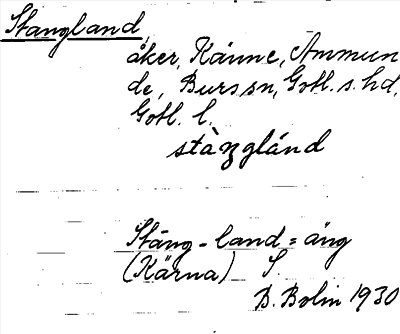 Stangland,
åker, Ränne, Ammun
de, Burs sn, Gotl. s. hd,
Gotl. l.
stàŋglánd
Stäng-land = äng
(Kärna) S.
B. Bolin 1930